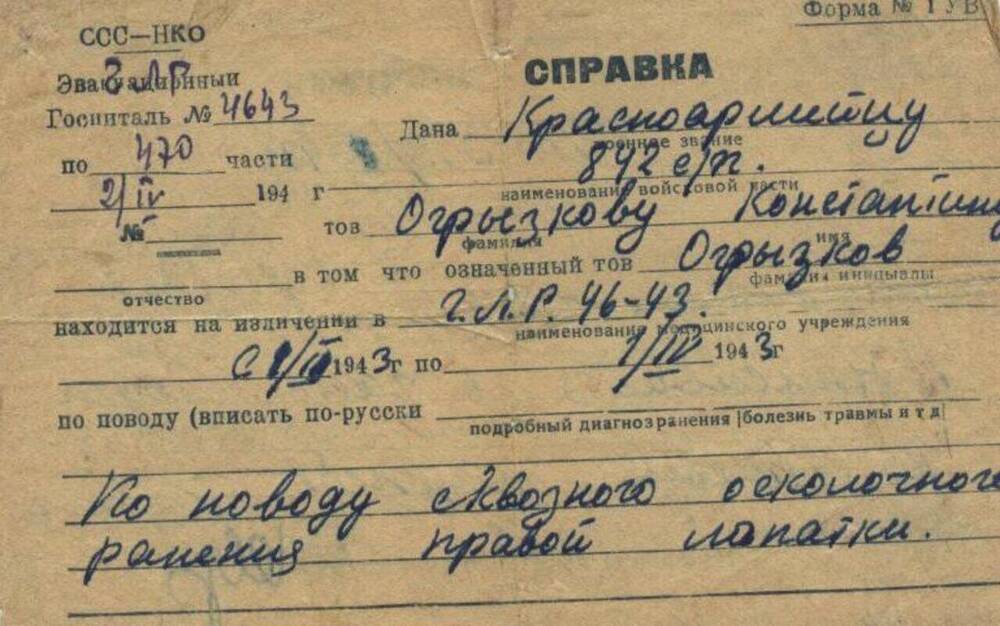 Форма № 1 УВ
ССС—НКО
СПРАВКА
Эвакуационныи
Госпиталь № 4643
Дана Красноармейцу
военное звание
по 470 части
842 с/п.
2/IV 194 г
наименование войсковой части
№ тов Огрызкову Константину
фамилия имя
в том что означенный тов Огрызков
отчество фамилия инициалы
находится на изличении в г.Л.Р. 46-43.
наименование медицинского учреждения
С 1943г по 1/IV 1943г
по поводу (вписать по-русски
подробный диагноз ранения |болезнь травмы и т д|
По поводу сквозного осколочного
ранения правой лопатки.